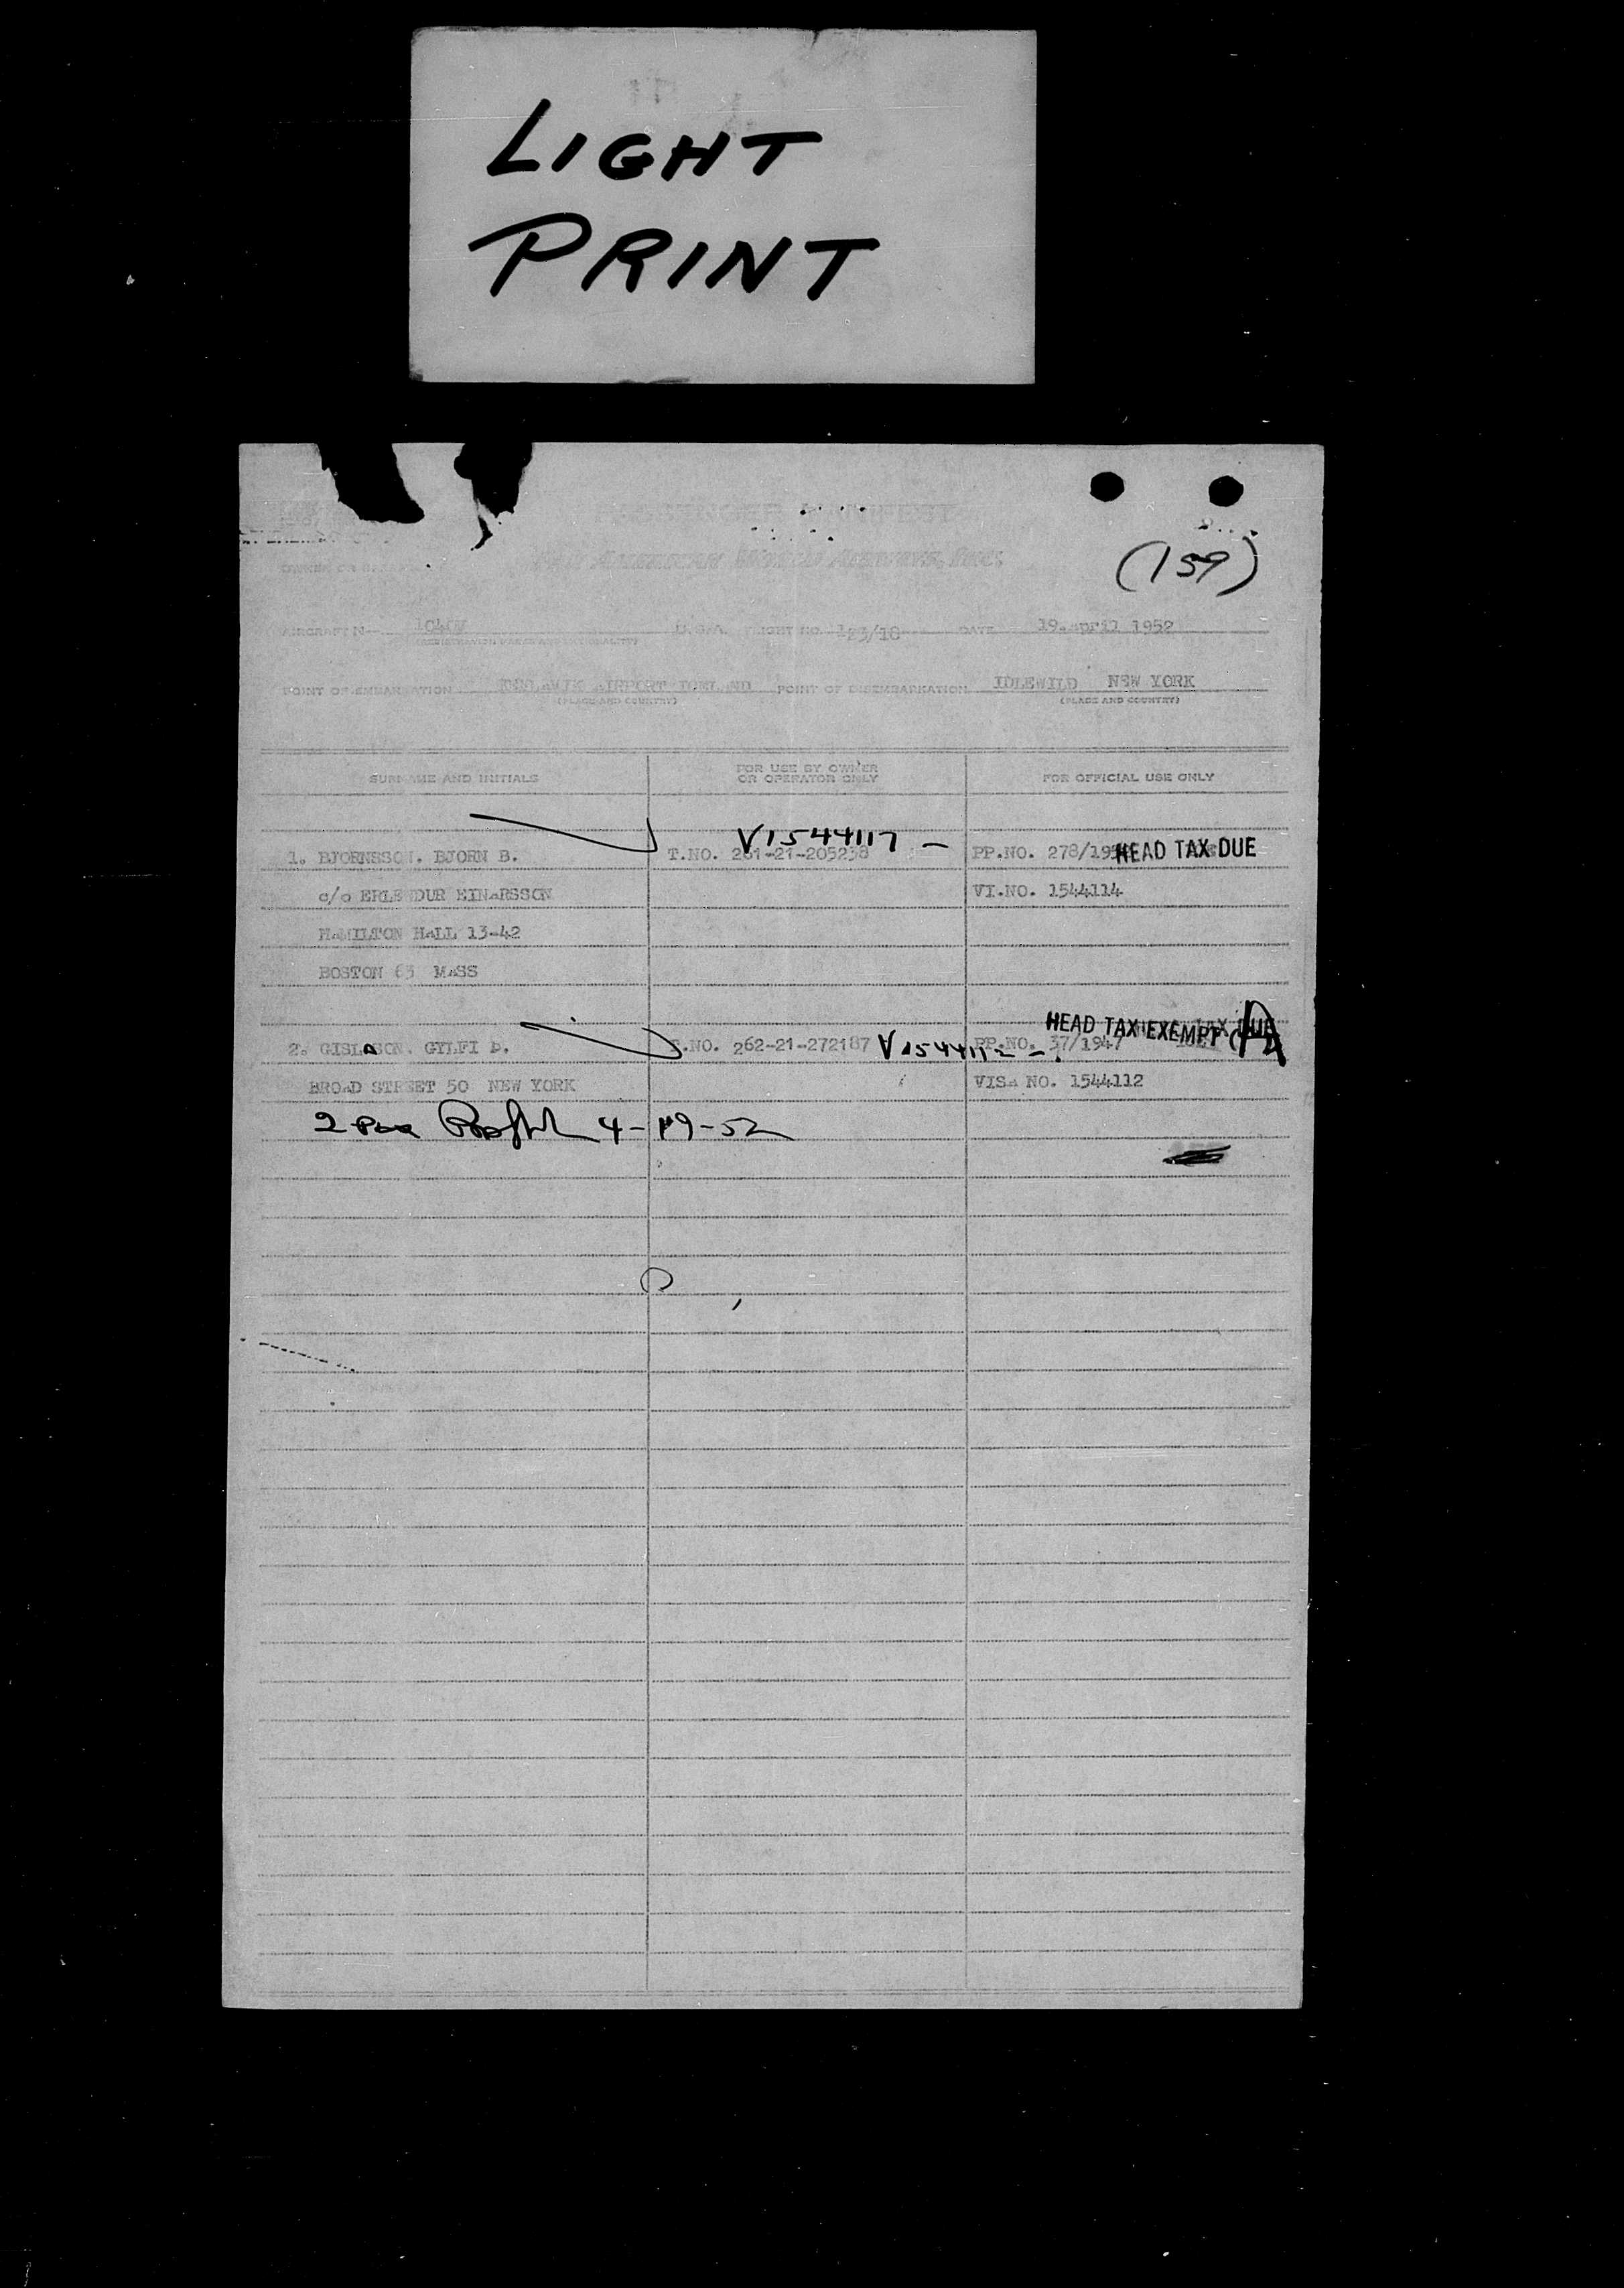 LIGHT
PRINT
PASSENGER MANIFEST
PAN AMERICAN WORLD AIRWAYS, INC.
(159)
AIRCRAFT N U.S.A. FLIGHT NO. 123/18 DATE 19.april 1952
POINT OF EMBARKATION KEFLAVIK AIRPORT ICELAND POINT OF DISEMBARKATION IDLEWILD NEW YORK
(PLACE AND COUNTRY) (PLACE AND COUNTRY)
SURNAME AND INITIALS FOR USE BY OWNER OR OPERATOR ONLY FOR OFFICIAL USE ONLY
V1544117 -
1. BJORNSSON. BJORN B. T.NO. 261-21-205238 PP.NO. 278/19 HEAD TAX DUE
c/o ERLENDUR EINARSSON VI.NO. 1544114
HAMILTON HALL 13-42
BOSTON 63 MASS
HEAD TAX EXEMPT
2. GISLASON. GYLFI Þ. T.NO. 262-21-272187 V1544112 - PP.NO. 37/1947
BROAD STREET 50 NEW YORK VISA NO. 1544112
2 4-19-52